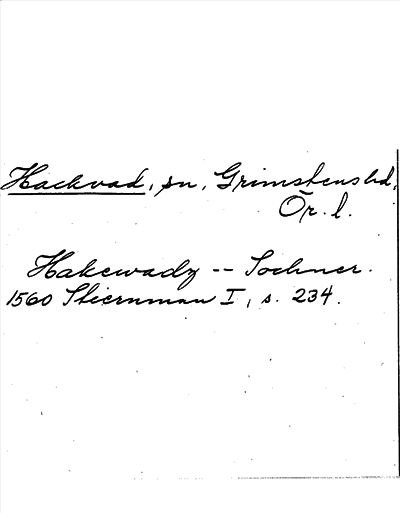 Hackvad, sn, Grimstens hd,
Ör. l.
Hakewadz -- Sochner.
1560 Stiernman I, s. 234.